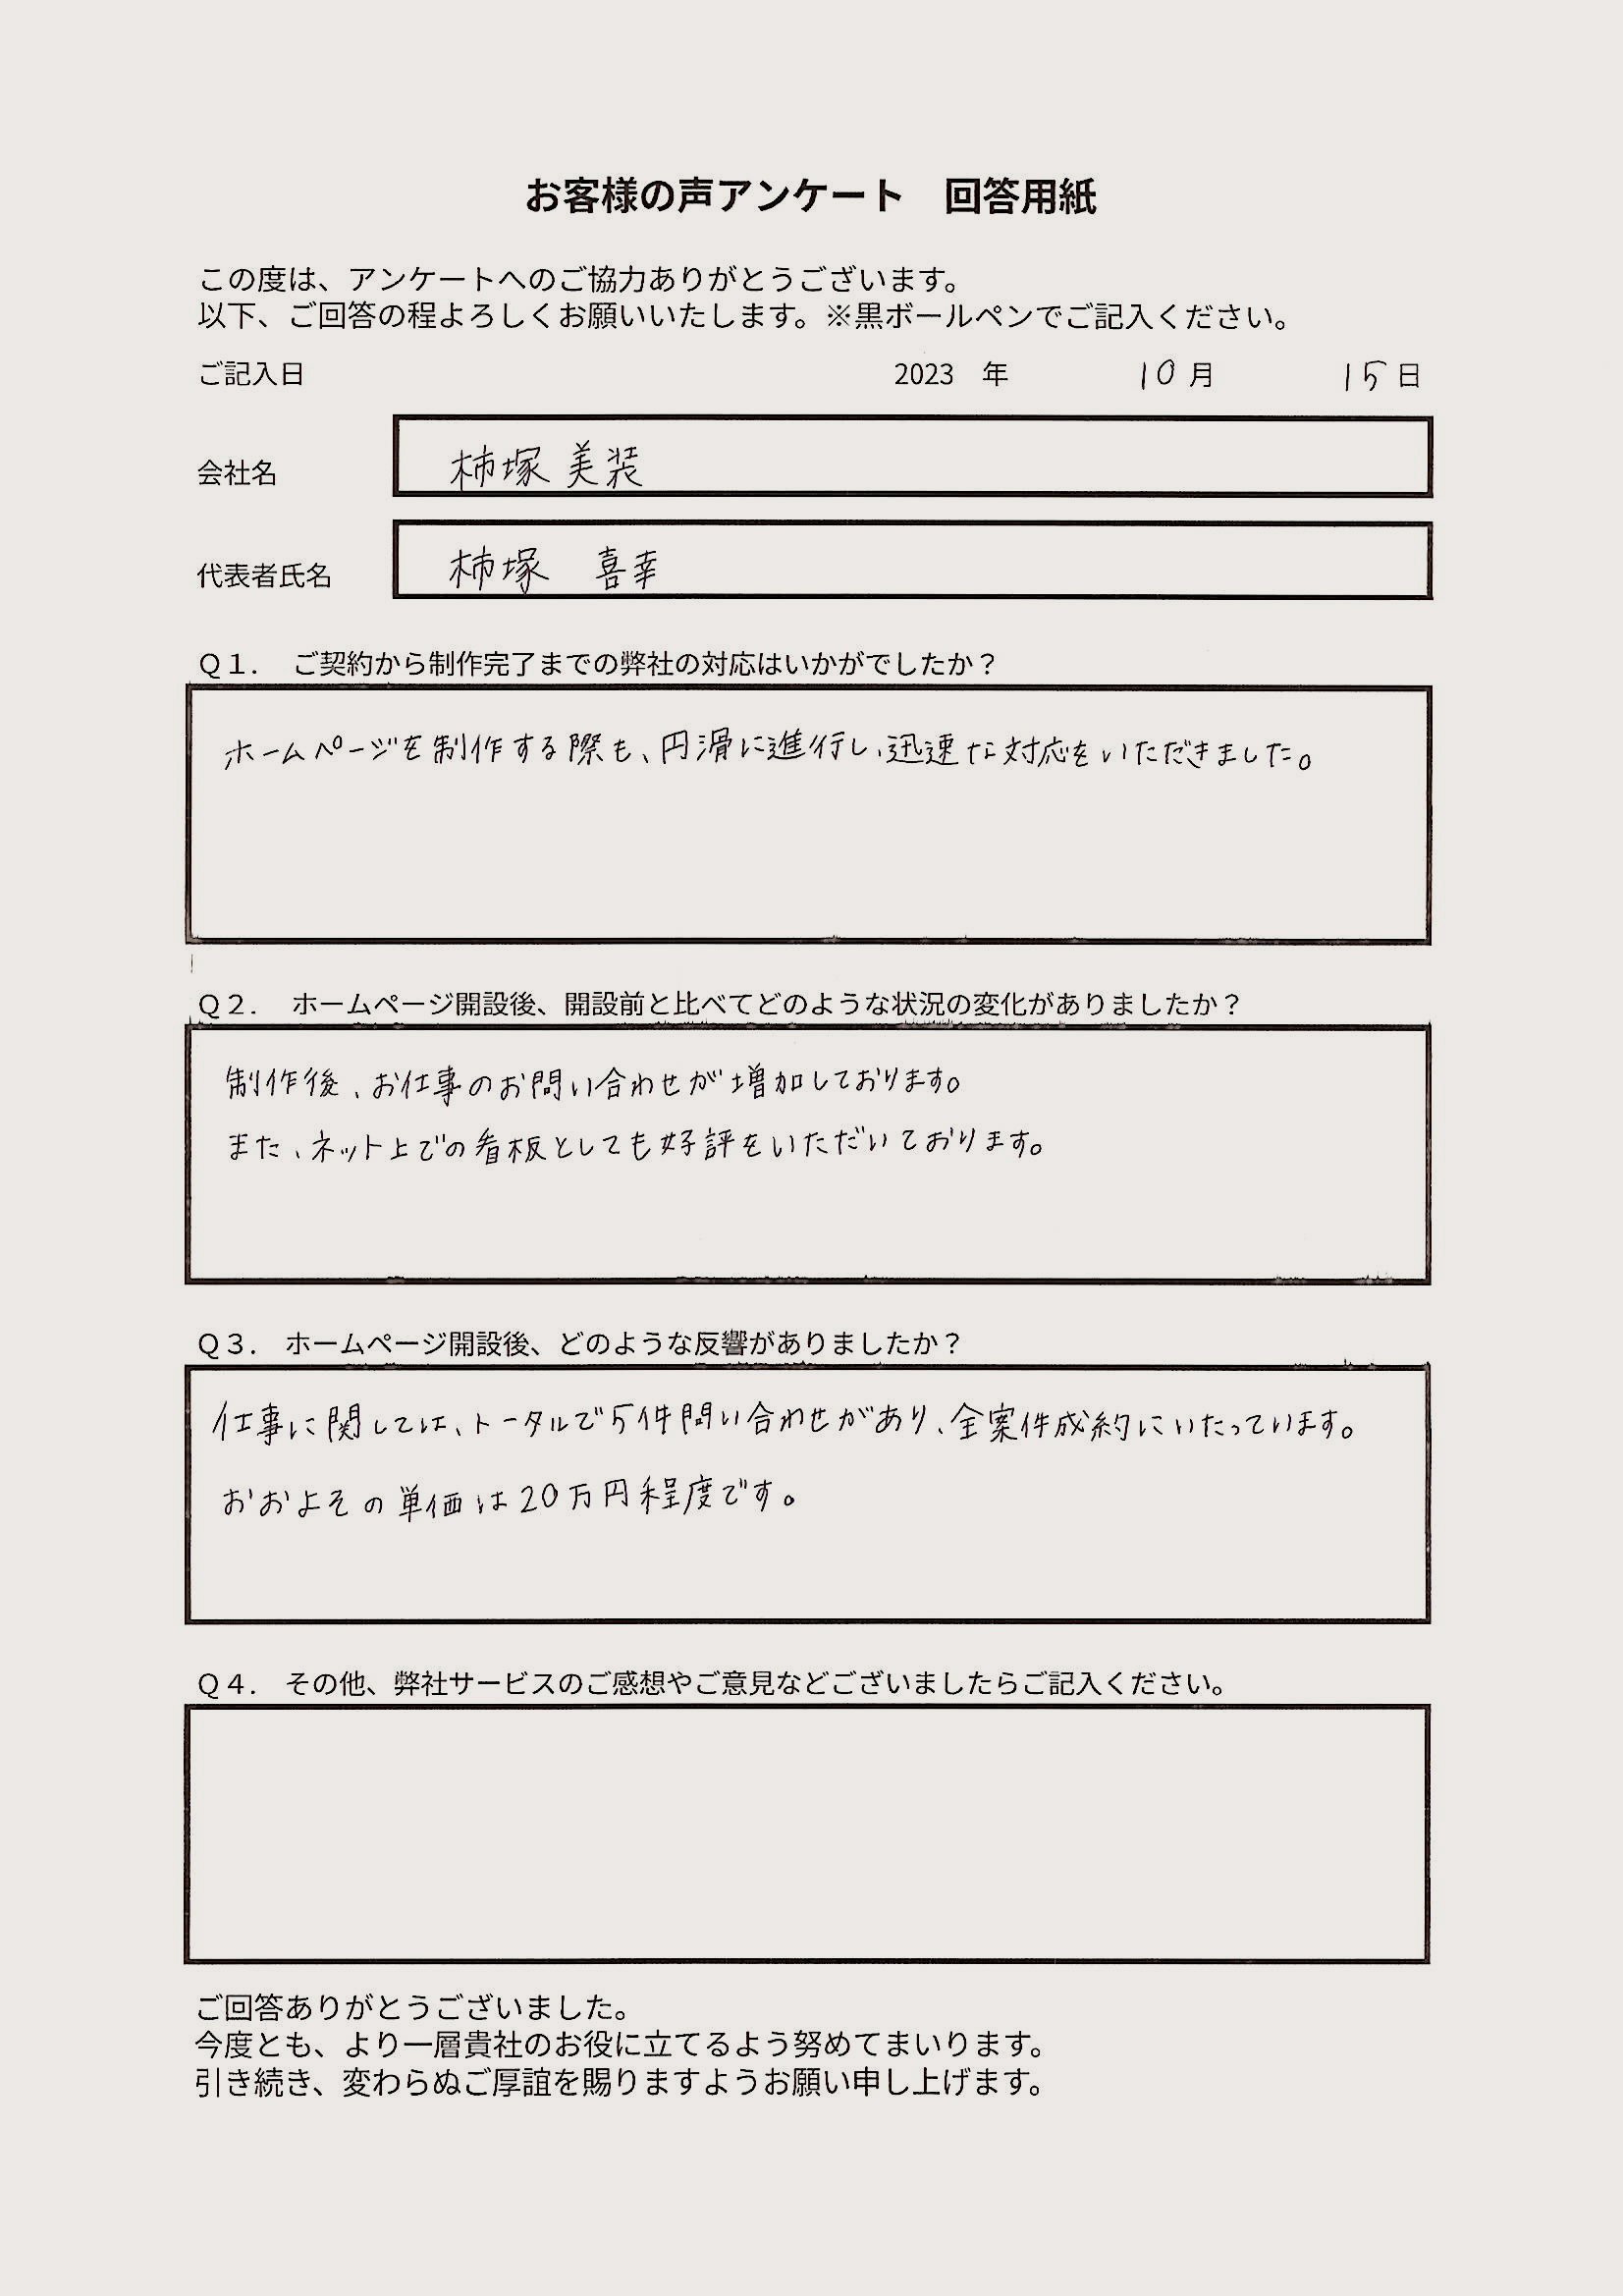 お客様の声アンケート　回答用紙
この度は、アンケートへのご協力ありがとうございます。
以下、ご回答の程よろしくお願いいたします。※黒ボールペンでご記入ください。
ご記入日　2023　年　10　月　15　日
会社名　柿塚 美装
代表者氏名　柿塚　喜幸
Ｑ１.　ご契約から制作完了までの弊社の対応はいかがでしたか？
ホームページを制作する際も、円滑に進行し、迅速な対応をいただきました。
Ｑ２.　ホームページ開設後、開設前と比べてどのような状況の変化がありましたか？
制作後、お仕事のお問い合わせが増加しております。
また、ネット上での看板としても好評をいただいております。
Ｑ３.　ホームページ開設後、どのような反響がありましたか？
仕事に関しては、トータルで5件問い合わせがあり、全案件成約にいたっています。
おおよその単価は20万円程度です。
Ｑ４.　その他、弊社サービスのご感想やご意見などございましたらご記入ください。
ご回答ありがとうございました。
今度とも、より一層貴社のお役に立てるよう努めてまいります。
引き続き、変わらぬご厚誼を賜りますようお願い申し上げます。